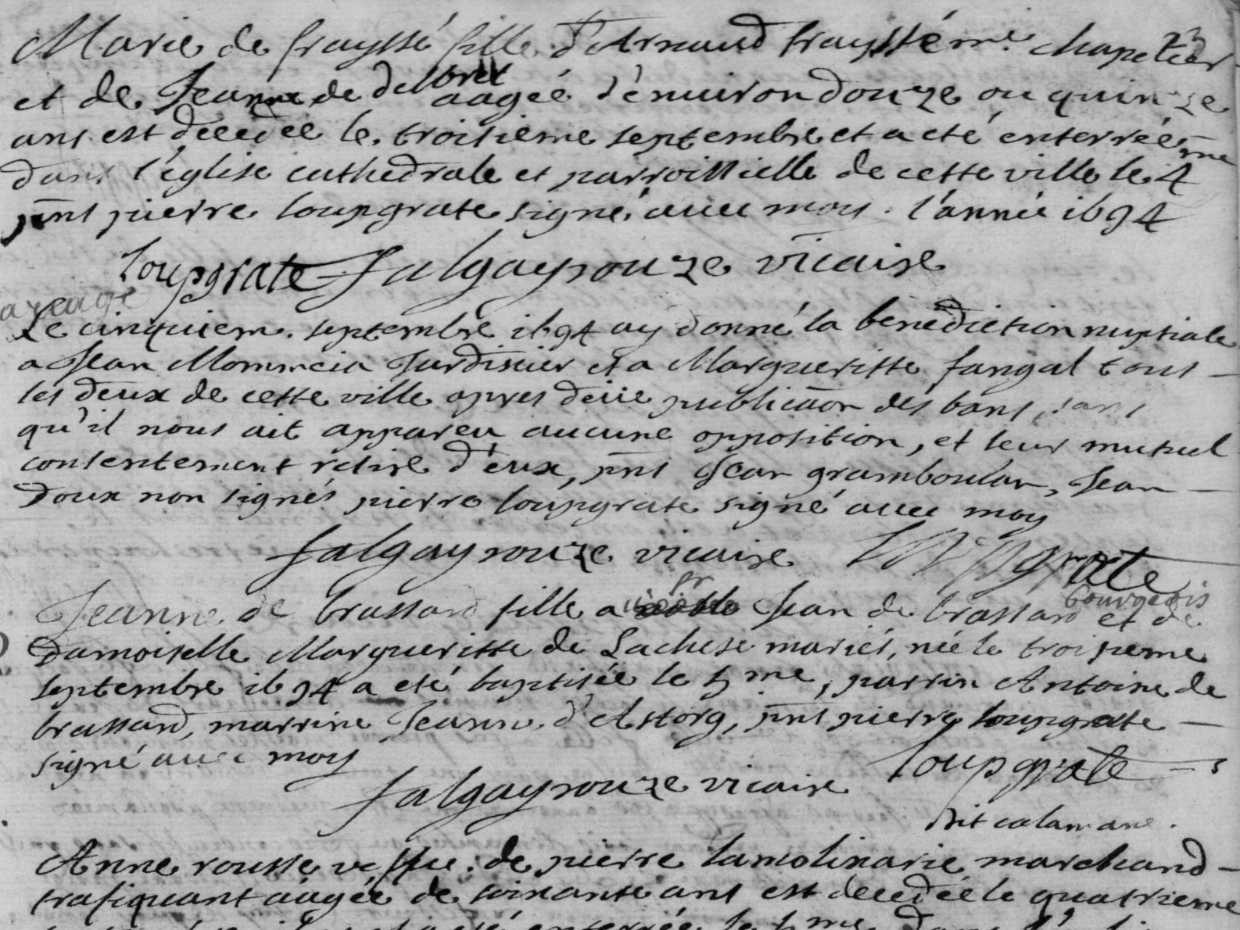 Marie de fraysse fille d'Arnaud frayssé me chapelier
et de Jeanne de delbret aagée d'environ douze ou quinze
ans est decedée le troisieme septembre et a eté enterrée
dans l'église cathedrale et parroissielle de cette ville le 4me
pnts pierre loupgrate signé avec moy. l'année 1694
loupgrate falgayrouze vicaire
Le cinquiem. septembre 1694 ay donné la benediction nuptiale
a Jean Jardinier et a Margueritte fangal tous
les deux de cette ville apres deüe publicãon des bans, sans
qu'il nous ait appareu aucune opposition, et leur mutuel
consentement retire d'eux, pnts Jean gramboulan, Jean
doux non signés pierre loupgrate signé avec moy
falgayrouze vicaire loupgrate
pr bourgeois
Jeanne de brassard fille a Jean de brassard et de
Damoiselle Margueritte de Lachese mariés, née le troisieme
septembre 1694 a eté baptisée le 5me, parrin Antoine de
brassard, marrine Jeanne d'Astorg, pnts pierre loupgrate
signé avec moy
falgayrouze vicaire loupgrate
dit calamane.
Anne rousse de pierre lamolinarie marchand
trafiquant aagée de soixante ans est decedée le quatrieme
eté enterrée le 5me dans l'